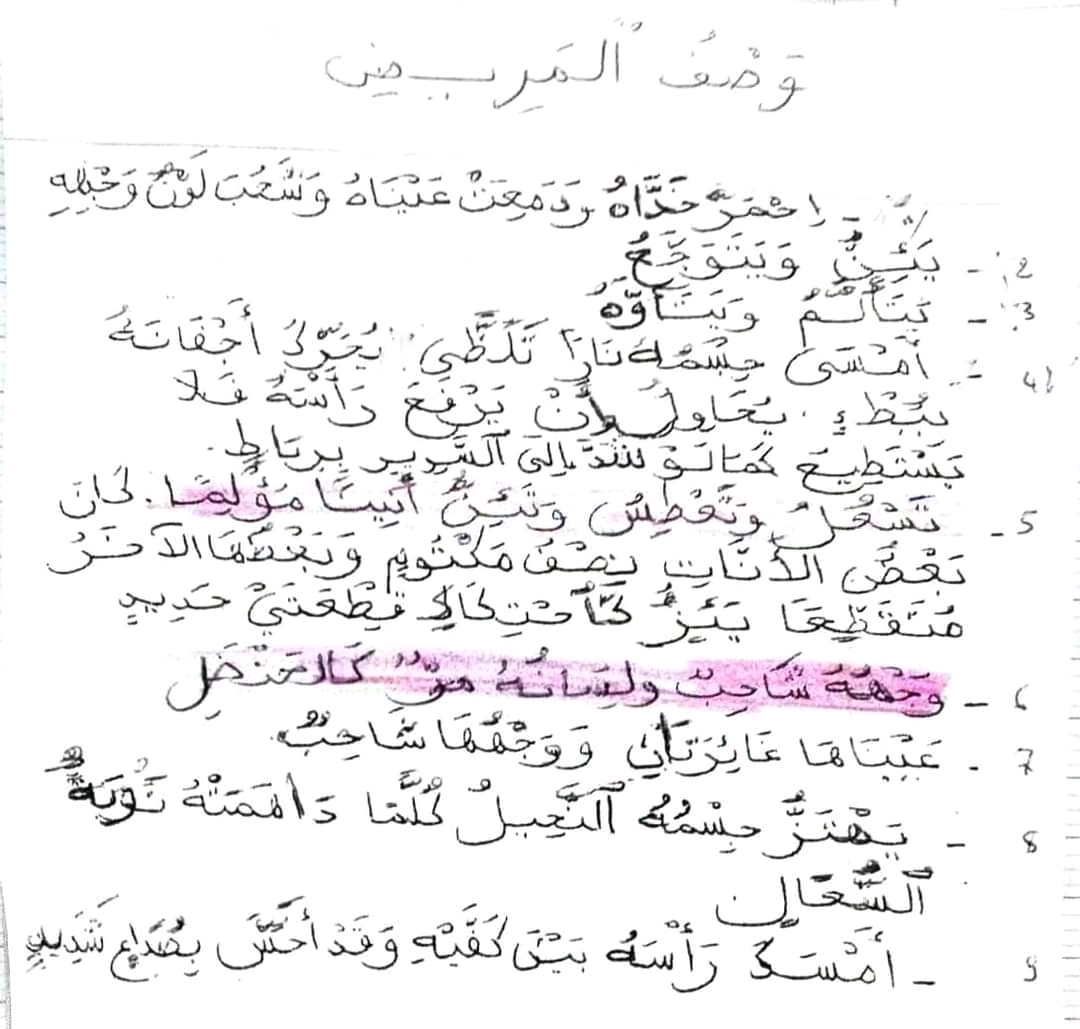 وَصْفُ ٱلمَرِيضِ
1 - اِحْمَرَّ خَدَّاهُ وَدَمِعَتْ عَيْنَاهُ وَشَحُبَ لَوْنُ وَجْهِهِ
2 - يَئِنُّ وَيَتَوَجَّعُ
3 - يَتَأَلَّمُ وَيَتَأَوَّهُ
4 - أَمْسَى جِسْمُهُ نَارًا تَلَظَّى يُحَرِّكُ أَجْفَانَهُ
بِبُطْءٍ . يُحَاوِلُ أَنْ يَرْفَعَ رَأْسَهُ فَلَا
يَسْتَطِيعَ كَمَا لَوْ شُدَّ إِلَى ٱلسَّرِيرِ بِرِبَاطٍ.
5 - تَسْعُلُ وَتَعْطِسُ وَتَئِنُّ أَنِينًا مُؤْلِمًا. كَانَ
بَعْضُ الأَنَّاتِ نِصْفَ مَكْتُومٍ وَبَعْضُهَا الآخَرُ
مُتَقَطِّعًا يَئِزُّ كَٱحْتِكَاكِ قِطْعَتَيْ حَدِيدٍ
6 - وَجْهُهُ شَاحِبٌ ولِسَانُهُ مُرٌّ كَالحَنْظَلِ
7 - عَيْنَاهَا غَائِرَتَانِ وَوَجْهُهَا شَاحِبٌ.
8 - يَهْتَزُّ جِسْمُهُ ٱلنَّحِيلُ كُلَّمَا دَاهَمَتْهُ نَوْبَةُ
ٱلسُّعَالِ
9 - أَمْسَكَ رَأْسَهُ بَيْنَ كَفَّيْهِ وَقَدْ أَحَسَّ بِصُدَاعٍ شَدِيدٍ